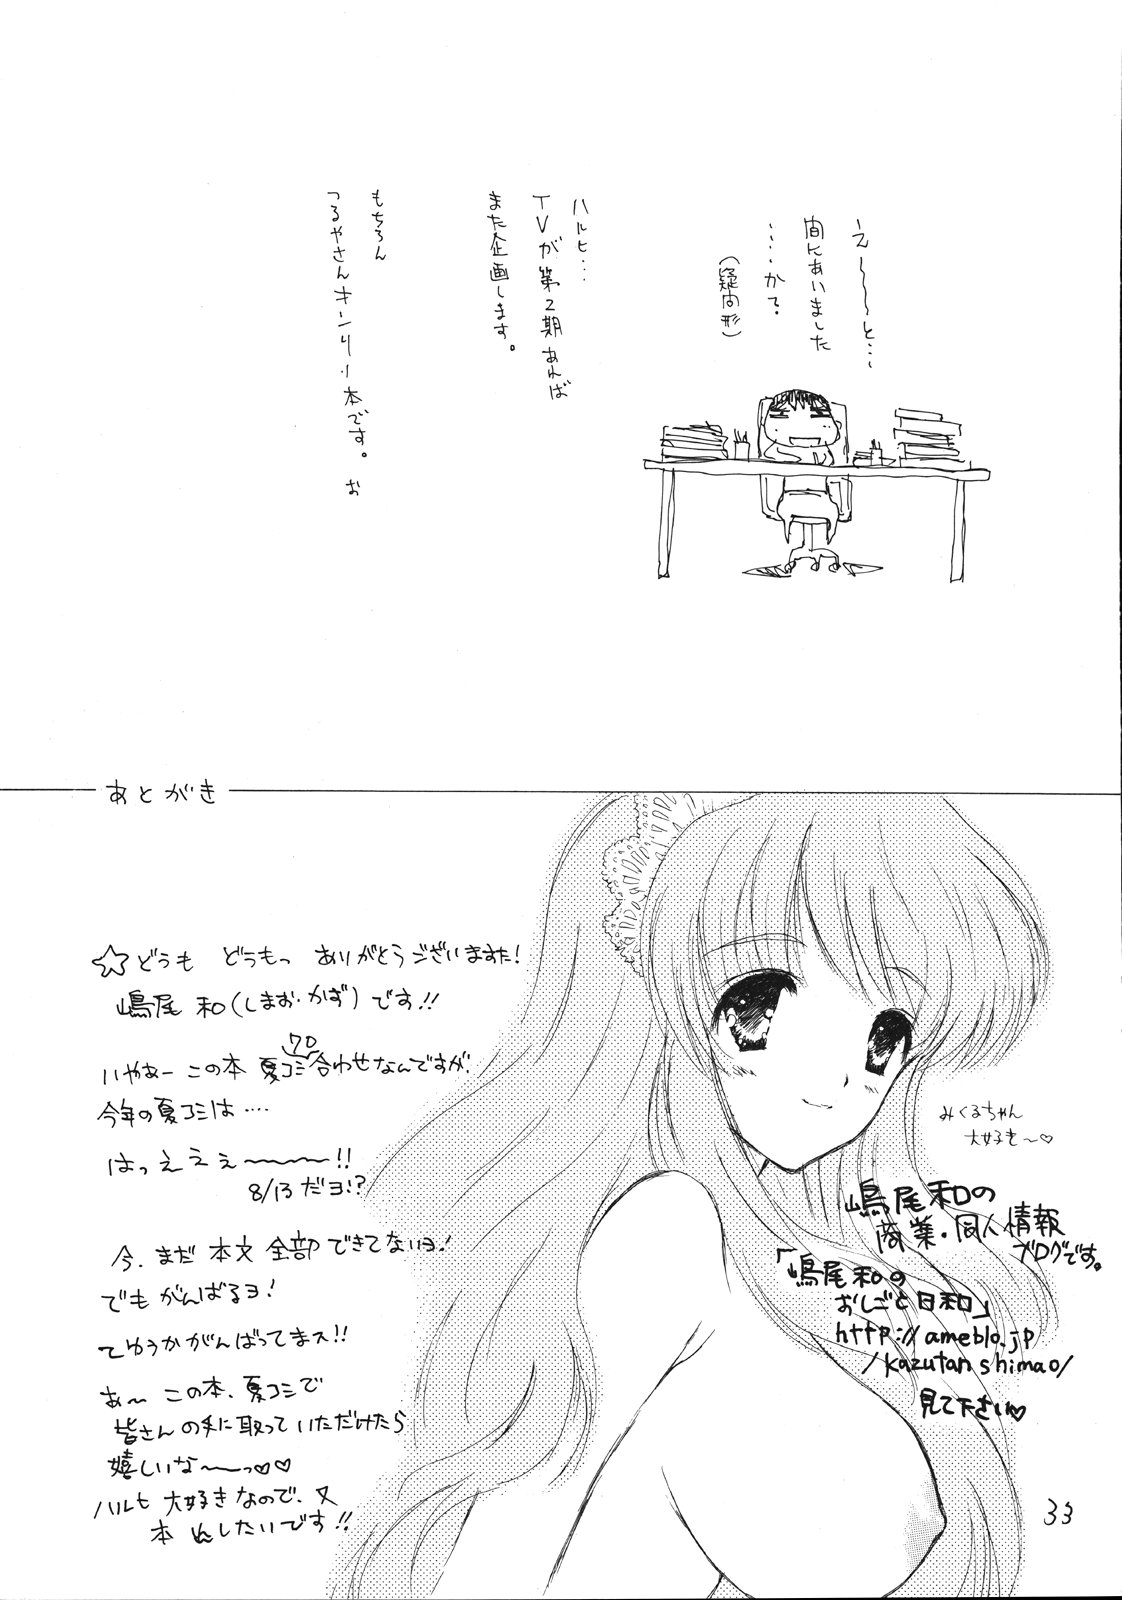 えーーーと…
間にあいました
……か？
（疑問形）
ハルヒ…
TVが第2期あれば
また企画します。
もちろん
つるやさんオンリー本です。 お
あとがき
☆どうも どうもっ ありがとうございますた!
嶋尾 和(しまお・かず)です!!
いやぁー この本 夏コミ合わせなんですが、
プロ
今年の夏コミは‥‥
はっえぇぇ〜〜〜!!
8/13だヨ!?
今、まだ 本文 全部 できてないヨ!
でも がんばるヨ!
てゆうか がんばってまス!!
あ〜 この本、夏コミで
皆さんの手に取っていただけたら
嬉しいな〜〜っ♡♡
ハルヒ 大好きなので、又
本 だしたいです!!
みくるちゃん
大好き〜♡
嶋尾和の
商業・同人情報
ブログです。
「嶋尾和の
おしごと日和」
http://ameblo.jp
/kazutanshimao/
見て下さい♡
33